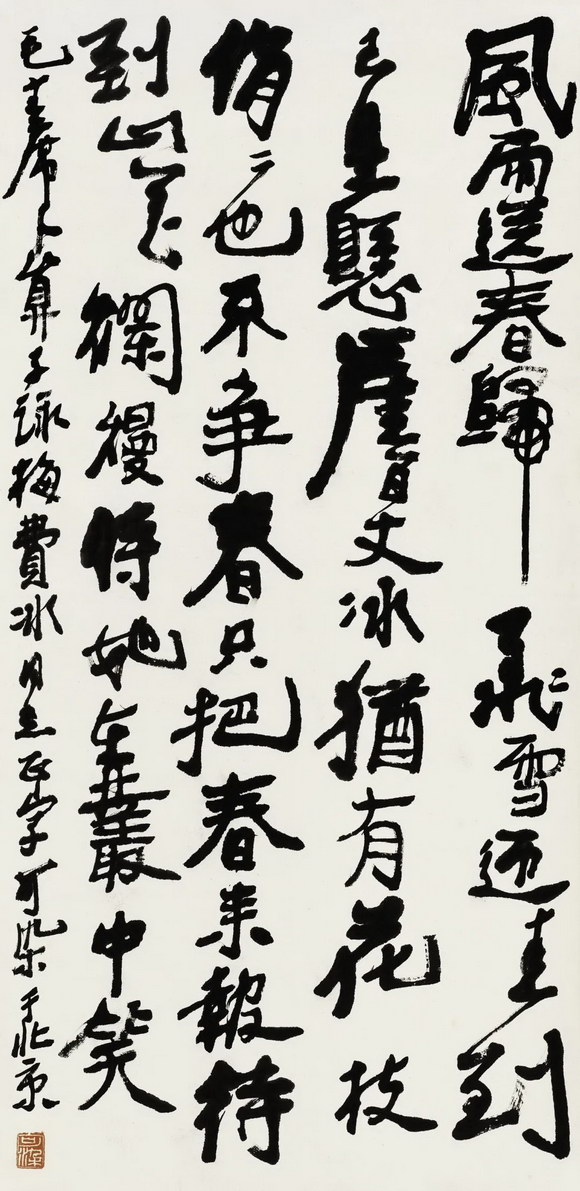 風雨送春歸飛雪迎春到
已是懸崖百丈冰猶有花枝
俏〻也不争春只把春来報待
到山花爛熳待她在叢中笑
毛主席卜算子詠梅費冰同志正字可染于北京
可染